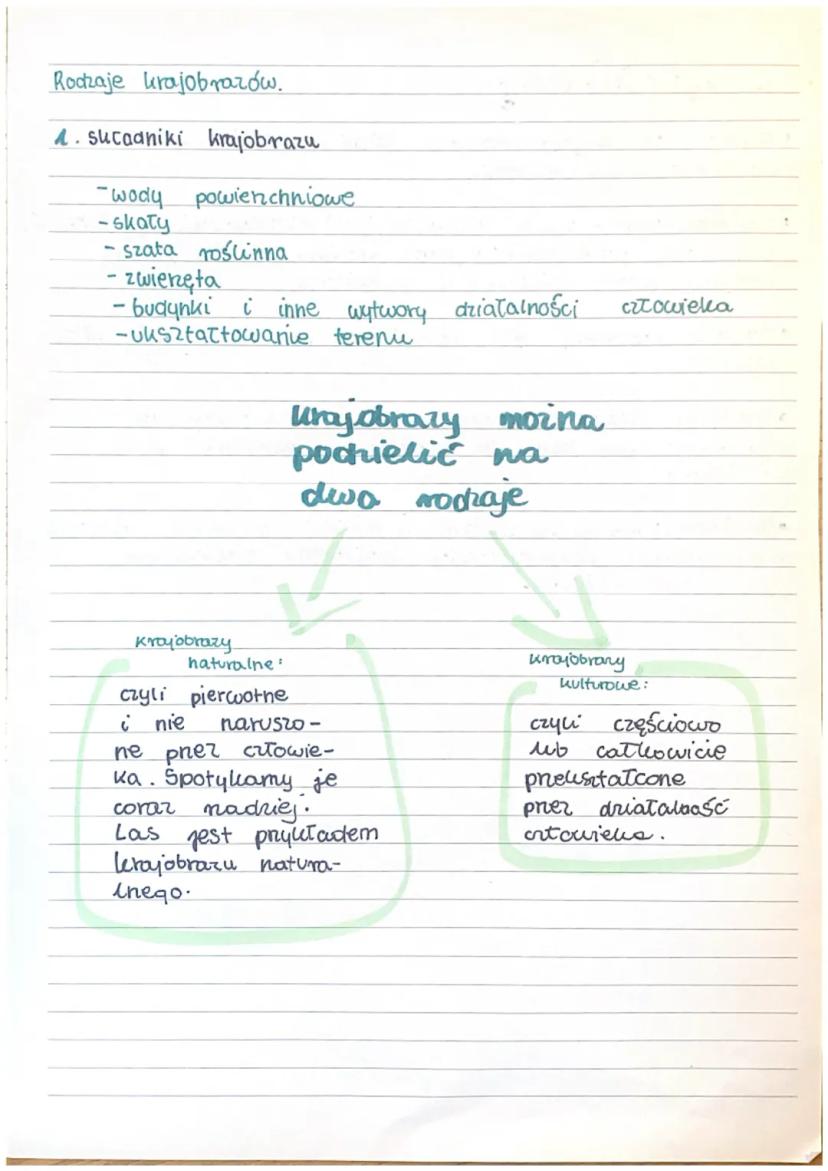 Rodzaje krajobrazów.
1. składniki krajobrazu
-wody powierzchniowe
-skały
- szata roślinna
- zwierzęta
- budynki i inne wytwory działalności człowieka
-ukształtowanie terenu
Krajobrazy można
podzielić na
dwa rodzaje
Krajobrazy
naturalne:
czyli pierwotne
i nie naruszo-
ne przez człowie-
ka. Spotykamy je
coraz rzadziej.
Las jest przykładem
krajobrazu natura-
lnego.
Krajobrazy
kulturowe:
czyli częściowo
lub całkowicie
przekształcone
przez działalność
człowieka.